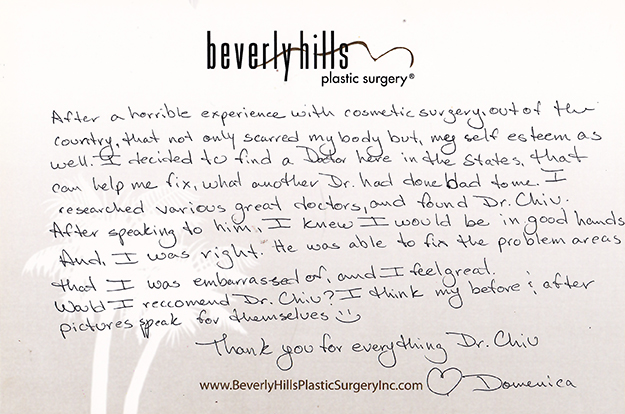 beverly hills
plastic surgery®
After a horrible experience with cosmetic surgery, out of the
country, that not only scarred my body but, my self esteem as
well. I decided to find a Doctor here in the States, that
can help me fix, what another Dr. had done bad to me. I
researched various great doctors, and found Dr. Chiu.
After speaking to him, I knew I would be in good hands
And, I was right. He was able to fix the problem areas
that I was embarrassed of, and I feel great.
Would I reccomend Dr. Chiu? I think my before & after
pictures speak for themselves
Thank you for everything Dr. Chiu
www.BeverlyHillsPlasticSurgeryInc.com
Domenica